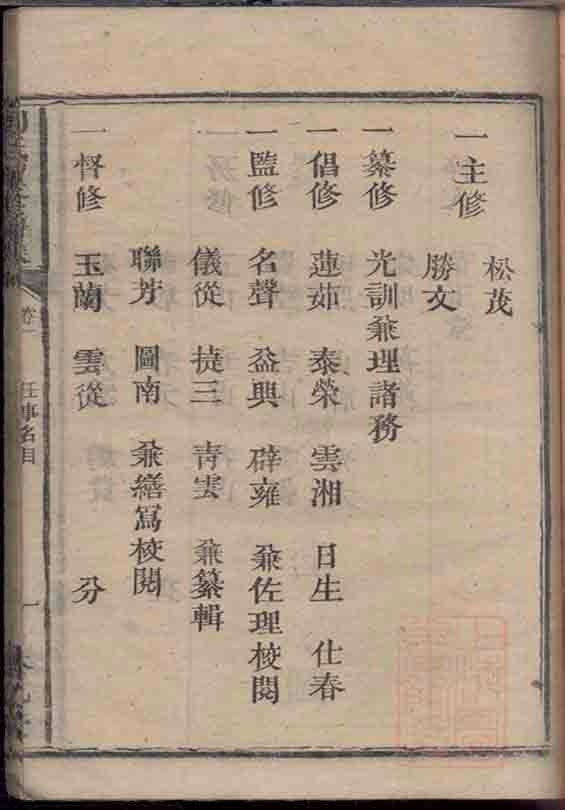 一主修
松茂
勝文
一纂修 光訓兼理諸務
一倡修 蓮茹 泰榮 雲湘 日生 仕春
一監修 名聲 益興 辟雍 兼佐理校閱
儀從 㨗三 青雲 兼纂輯
聯芳 圖南 兼繕寫校閱
一督修 玉蘭 雲從
卷一 任事名目 一